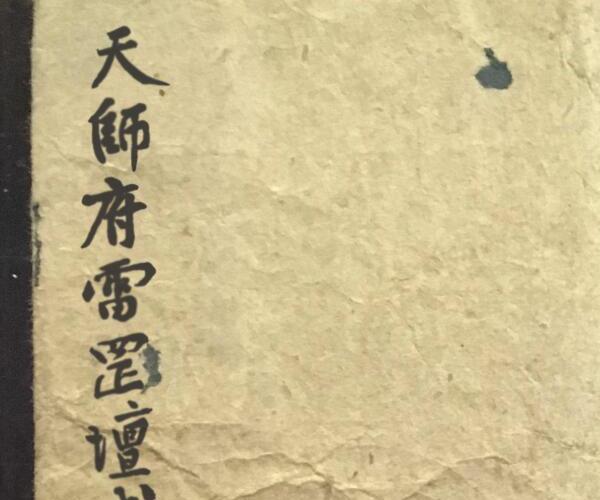 天師府雷罡壇